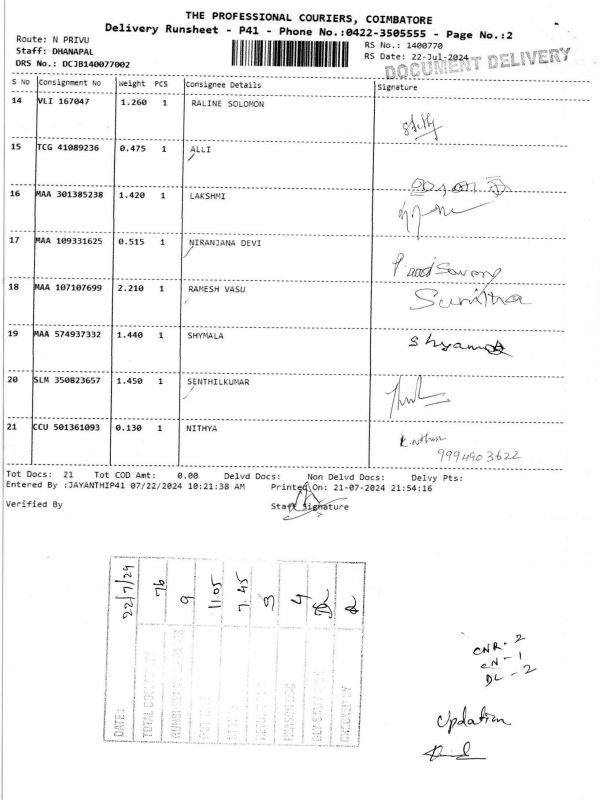 THE PROFESSIONAL COURIERS, COIMBATORE
Delivery Runsheet - P41 - Phone No.:0422-3505555 - Page No.:2
Route: N PRIVU
Staff: DHANAPAL
DRS No.: DCJB140077002
RS No.: 1400770
RS Date: 22-Jul-2024
DOCUMENT DELIVERY
S No Consignment No Weight PCS Consignee Details Signature
14 VLI 167047 1.260 1 RALINE SOLOMON
15 TCG 41089236 0.475 1 ALLI
16 MAA 301385238 1.420 1 LAKSHMI
17 MAA 109331625 0.515 1 NIRANJANA DEVI
18 MAA 107107699 2.210 1 RAMESH VASU
Sunitha
19 MAA 574937332 1.440 1 SHYMALA
Shyamala
20 SLM 350823657 1.450 1 SENTHILKUMAR
21 CCU 501361093 0.130 1 NITHYA
9994903622
Tot Docs: 21 Tot COD Amt: 0.00 Delvd Docs: Non Delvd Docs: Delvy Pts:
Entered By :JAYANTHIP41 07/22/2024 10:21:38 AM Printed On: 21-07-2024 21:54:16
Verified By Staff Signature
DATE: 22/7/24
76
9
11.05
7.45
3
4
CHECKED BY
CNR - 2
CN - 1
DL - 2
Updation